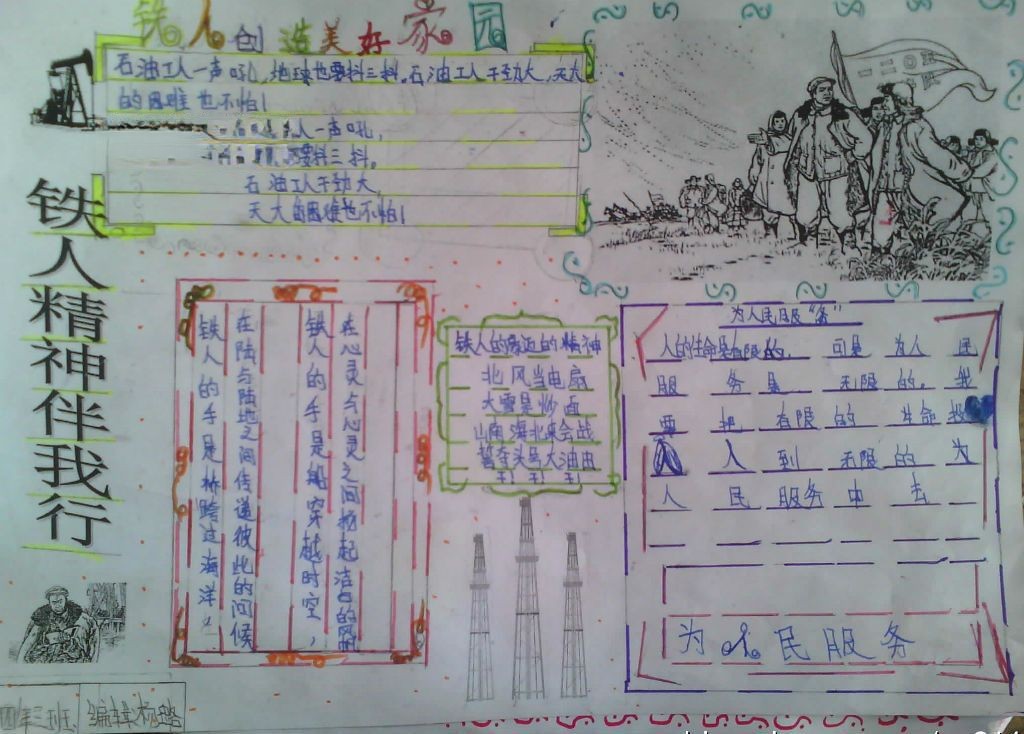 铁人创造美好家园
石油工人一声吼,地球也要抖三抖。石油工人干劲大,天大
的困难也不怕!
人一声吼,
要抖三抖。
石油工人干劲大,
天大的困难也不怕!
铁人精神伴我行
在心灵与心灵之间扬起洁白的风帆
铁人的手是船穿越时空,
在陆与陆地之间传递彼此的问候
铁人的手是桥跨过海洋,
铁人的 的精神
北风当电扇
大雪是炒面
山南海北来会战
誓夺头号大油田
干!干!干!
为人民服“务”
人的生命是有限的,可是 为人民
服务是 无限的。我
要把 有限的 生命投
入到 无限的 为
人民服务中去
为人民服务
四年三班
编辑